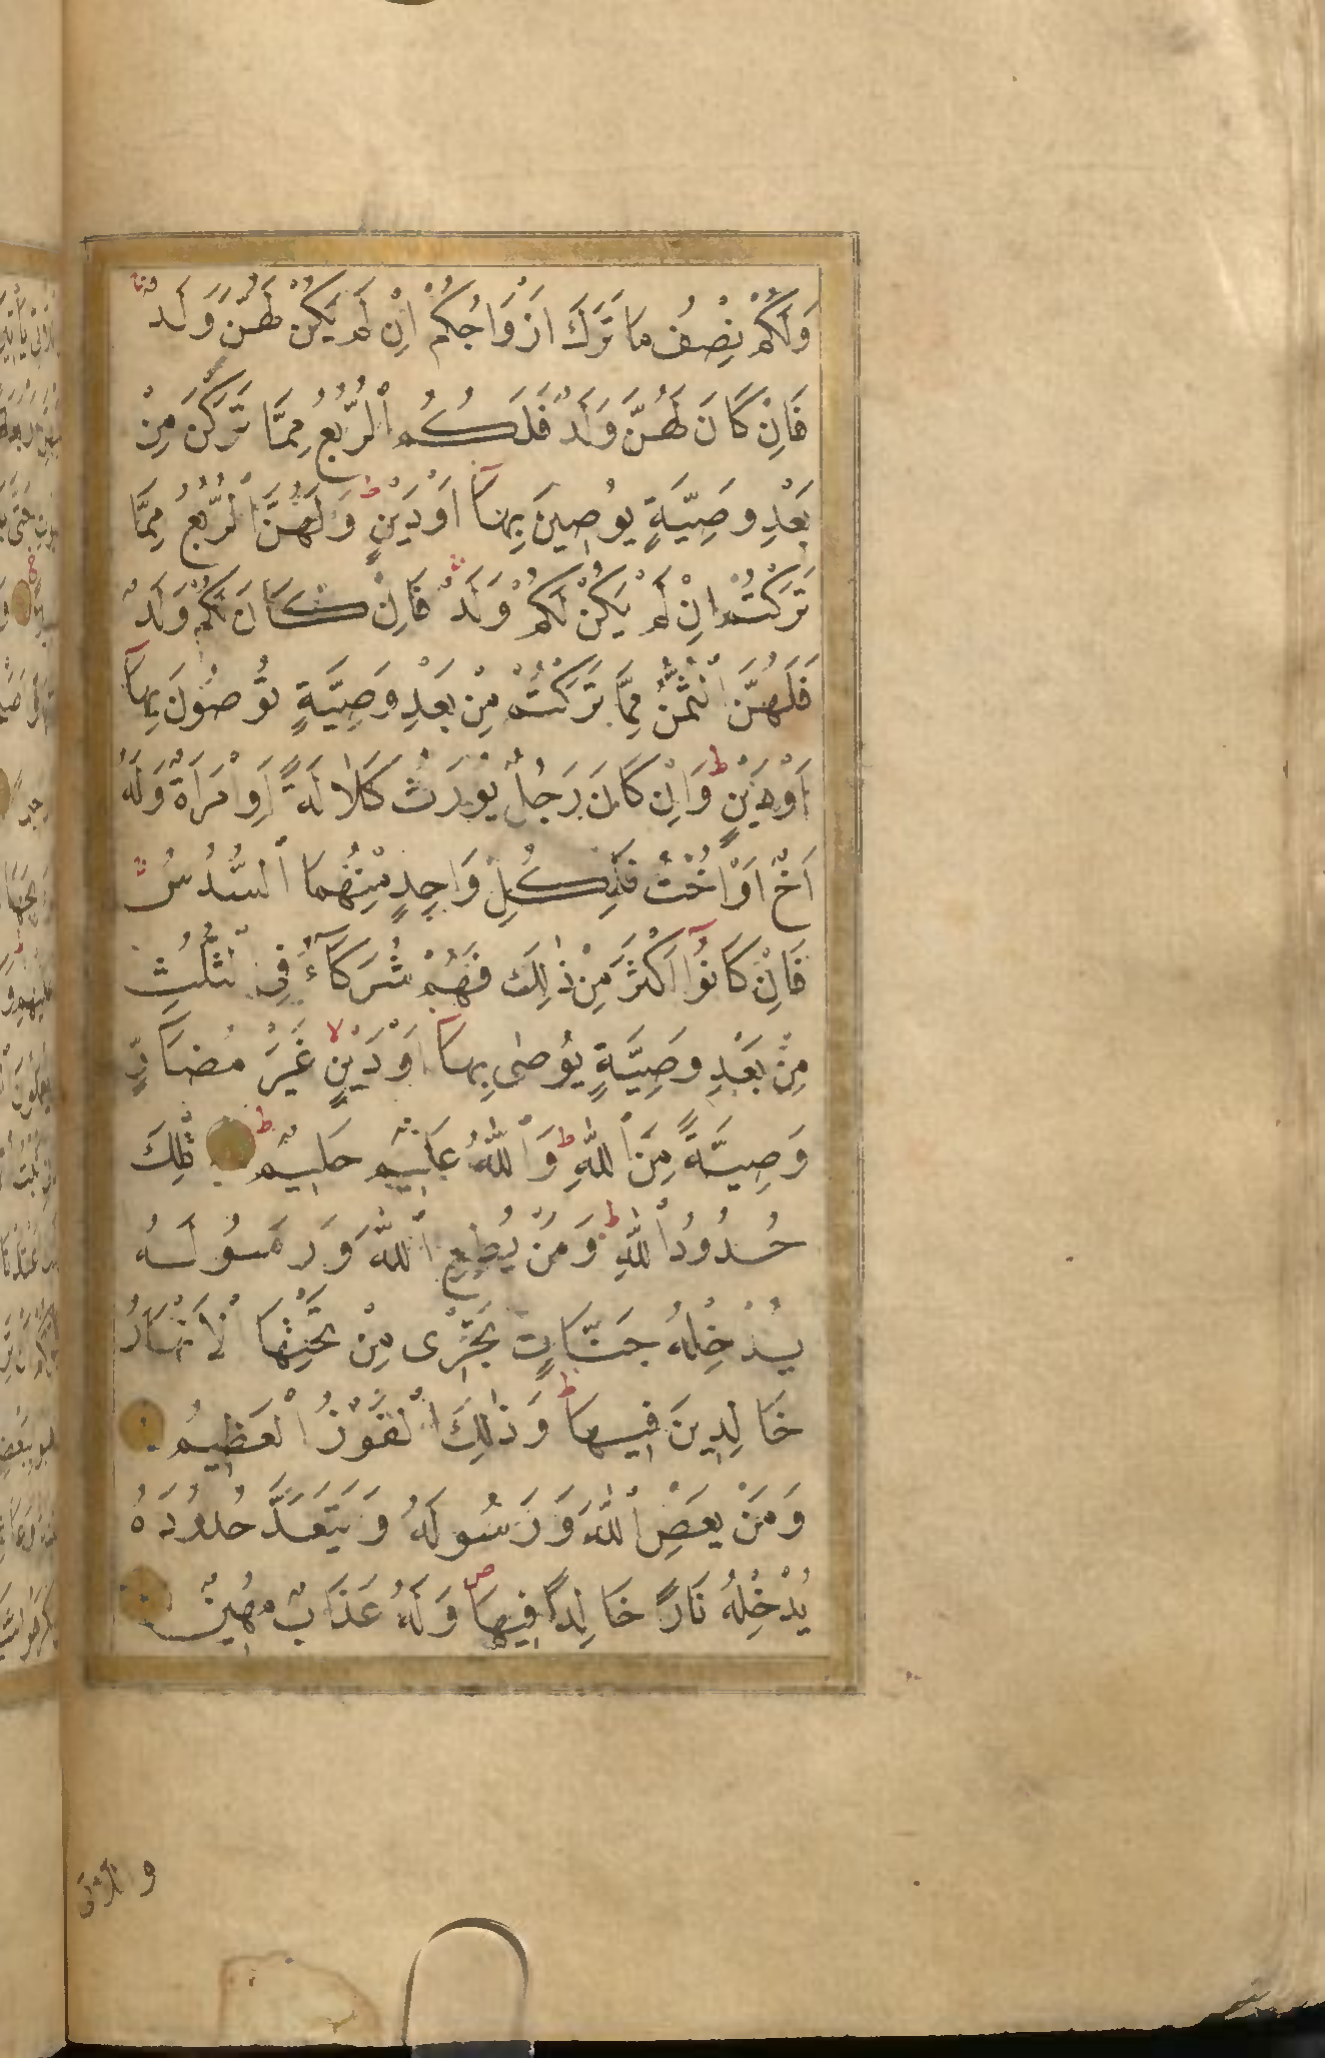 وَلَكُمْ نِصْفُ مَا تَرَكَ اَزْوَاجُكُمْ اِنْ لَمْ يَكُنْ لَهُنَّ وَلَدٌ
فَاِنْ كَانَ لَهُنَّ وَلَدٌ فَلَكُمُ الرُّبُعُ مِمَّا تَرَكْنَ مِنْ
بَعْدِ وَصِيَّةٍ يُوصِينَ بِهَا اَوْ دَيْنٍ ط وَلَهُنَّ الرُّبُعُ مِمَّا
تَرَكْتُمْ اِنْ لَمْ يَكُنْ لَكُمْ وَلَدٌ فَاِنْ كَانَ لَكُمْ وَلَدٌ
فَلَهُنَّ الثُّمُنُ مِمَّا تَرَكْتُمْ مِنْ بَعْدِ وَصِيَّةٍ تُوصُونَ بِهَا
اَوْ دَيْنٍ ط وَاِنْ كَانَ رَجُلٌ يُورَثُ كَلَالَةً اَوِ امْرَاَةٌ وَلَهُ
اَخٌ اَوْ اُخْتٌ فَلِكُلِّ وَاحِدٍ مِنْهُمَا السُّدُسُ
فَاِنْ كَانُوٓا اَكْثَرَ مِنْ ذٰلِكَ فَهُمْ شُرَكَآءُ فِى الثُّلُثِ
مِنْ بَعْدِ وَصِيَّةٍ يُوصٰى بِهَا اَوْ دَيْنٍ لا غَيْرَ مُضَارٍّ
وَصِيَّةً مِنَ اللّٰهِ ط وَاللّٰهُ عَلِيمٌ حَلِيمٌ ط تِلْكَ
حُدُودُ اللّٰهِ ط وَمَنْ يُطِعِ اللّٰهَ وَرَسُولَهُ
يُدْخِلْهُ جَنَّاتٍ تَجْرِى مِنْ تَحْتِهَا الْاَنْهَارُ
خَالِدِينَ فِيهَا ط وَذٰلِكَ الْفَوْزُ الْعَظِيمُ
وَمَنْ يَعْصِ اللّٰهَ وَرَسُولَهُ وَيَتَعَدَّ حُدُودَهُ
يُدْخِلْهُ نَارًا خَالِدًا فِيهَا ص وَلَهُ عَذَابٌ مُهِينٌ
وَالّٰتِى